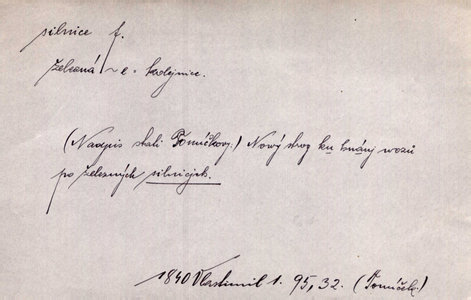 silnice f.
železná ~ e • kolejnice.
(Nadpis stati Tomíčkovy.) Nový stroj ku hnánj wozů
po železných silnicjch.
1840 Vlastimil 1. 95, 32. (Tomíček)